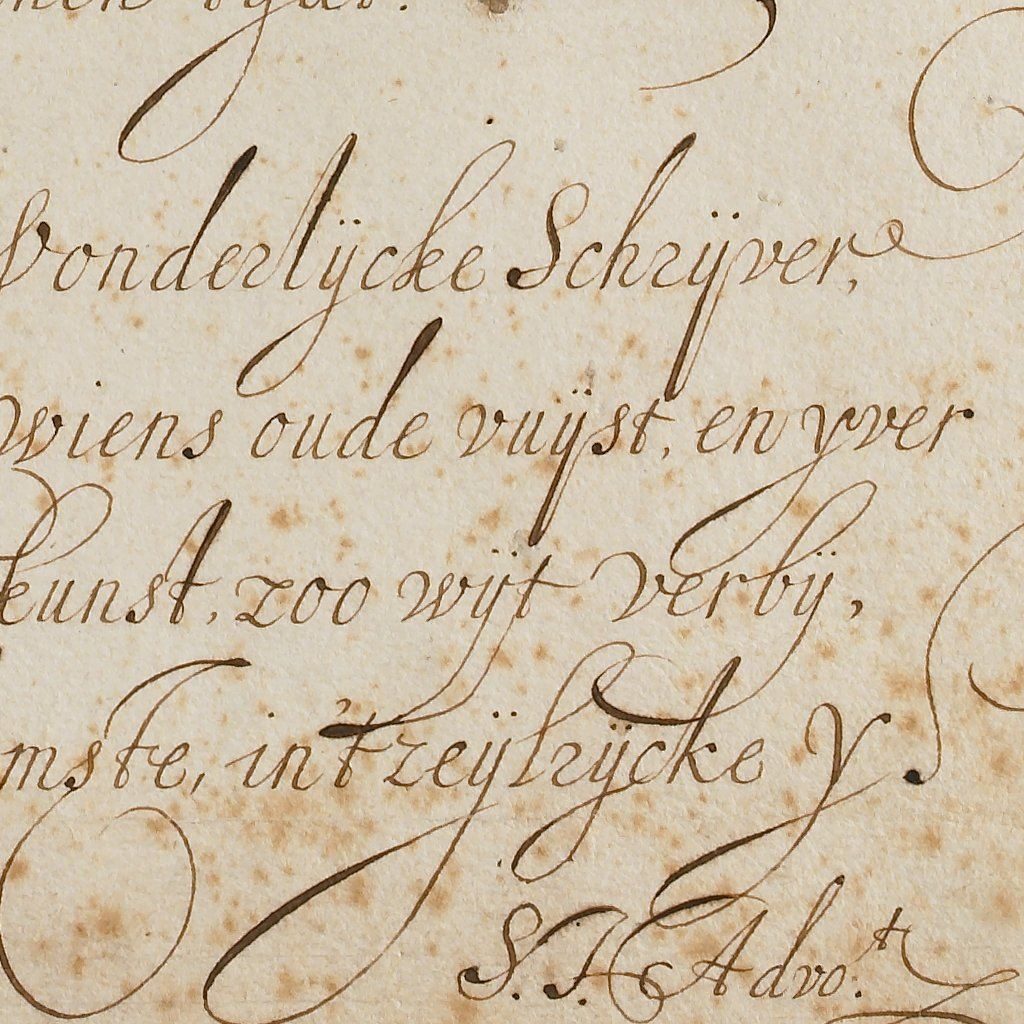 Wonderlÿcke Schrÿver,
wiens oude vuÿst, en yver
kunst, zoo wÿt verbÿ,
mste, in't zeÿlrÿcke Y.
S. J. Advo.t